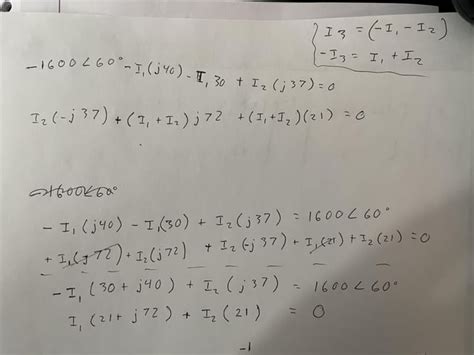 I3 = (-I1 - I2)
-I3 = I1 + I2
-1600∠60° - I1(j40) - I1 30 + I2(j37) = 0
I2(-j37) + (I1 + I2)j72 + (I1 + I2)(21) = 0
-I1(j40) - I1(30) + I2(j37) = 1600∠60°
+ I1(j72) + I2(j72) + I2(-j37) + I1(21) + I2(21) = 0
-I1(30 + j40) + I2(j37) = 1600∠60°
I1(21 + j72) + I2(21) = 0
-1